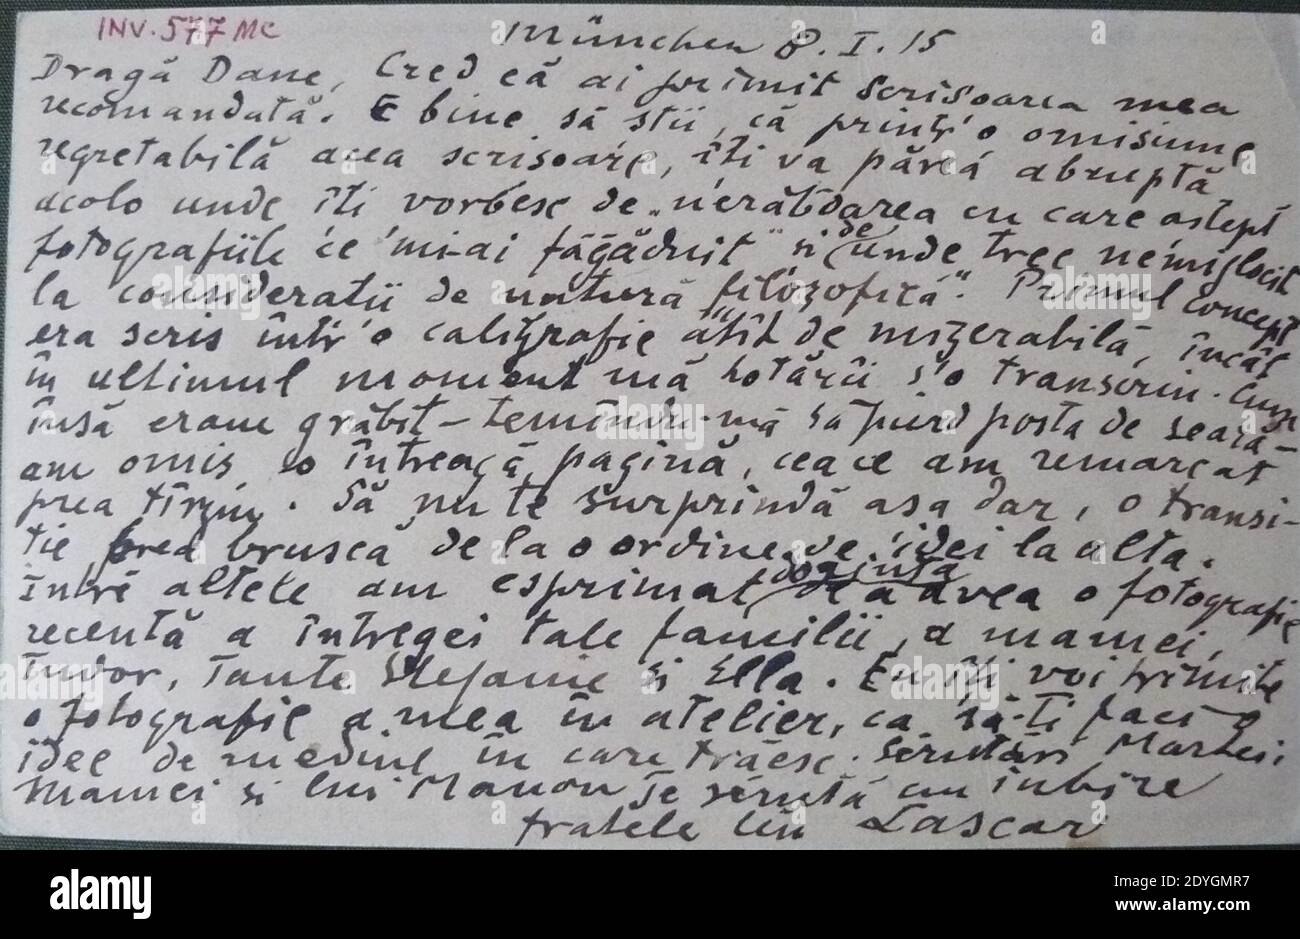 INV. 577 MC
München 8. I. 15
Dragă Dane, Cred că ai primit scrisoarea mea
recomandată. E bine să stii, că printr'o omisiune
regretabilă acea scrisoare, îti va părea abruptă
acolo unde îti vorbesc de "nerăbdarea cu care astept
fotografiile ce mi-ai făgăduit" si de unde trec nemijlocit
la consideratii de natură "filozofică". Primul concept
era scris într'o caligrafie atît de mizerabilă, încât
în ultimul moment mă hotării s'o transcriu. Cum
însă eram grăbit - temîndu-mă să pierd posta de seară -
am omis o întreagă pagină, ceace am remarcat
prea tîrziu. Să nu te surprindă asa dar, o transi-
tie prea bruscă de la o ordine de idei la alta.
Între altele am esprimat dorinta de a avea o fotografie
recentă a întregei tale familii, a mamei,
Tudor, Tante Stefanie si Ella. Eu îti voi trimite
o fotografie a mea în atelier, ca să-ti faci o
idee de mediul în care trăesc. Sărutări Martei,
Mamei si lui Manon Te sărută cu iubire
fratele tău Lascar
alamy
Image ID: 2DYGMR7
www.alamy.com